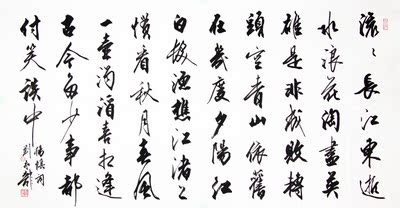 滾〻長江東逝
水浪花淘盡英
雄是非成敗轉
頭空青山依舊
在幾度夕陽紅
白髮漁樵江渚上
慣看秋月春風
一壺濁酒喜相逢
古今多少事都
付笑談中
楊慎詞